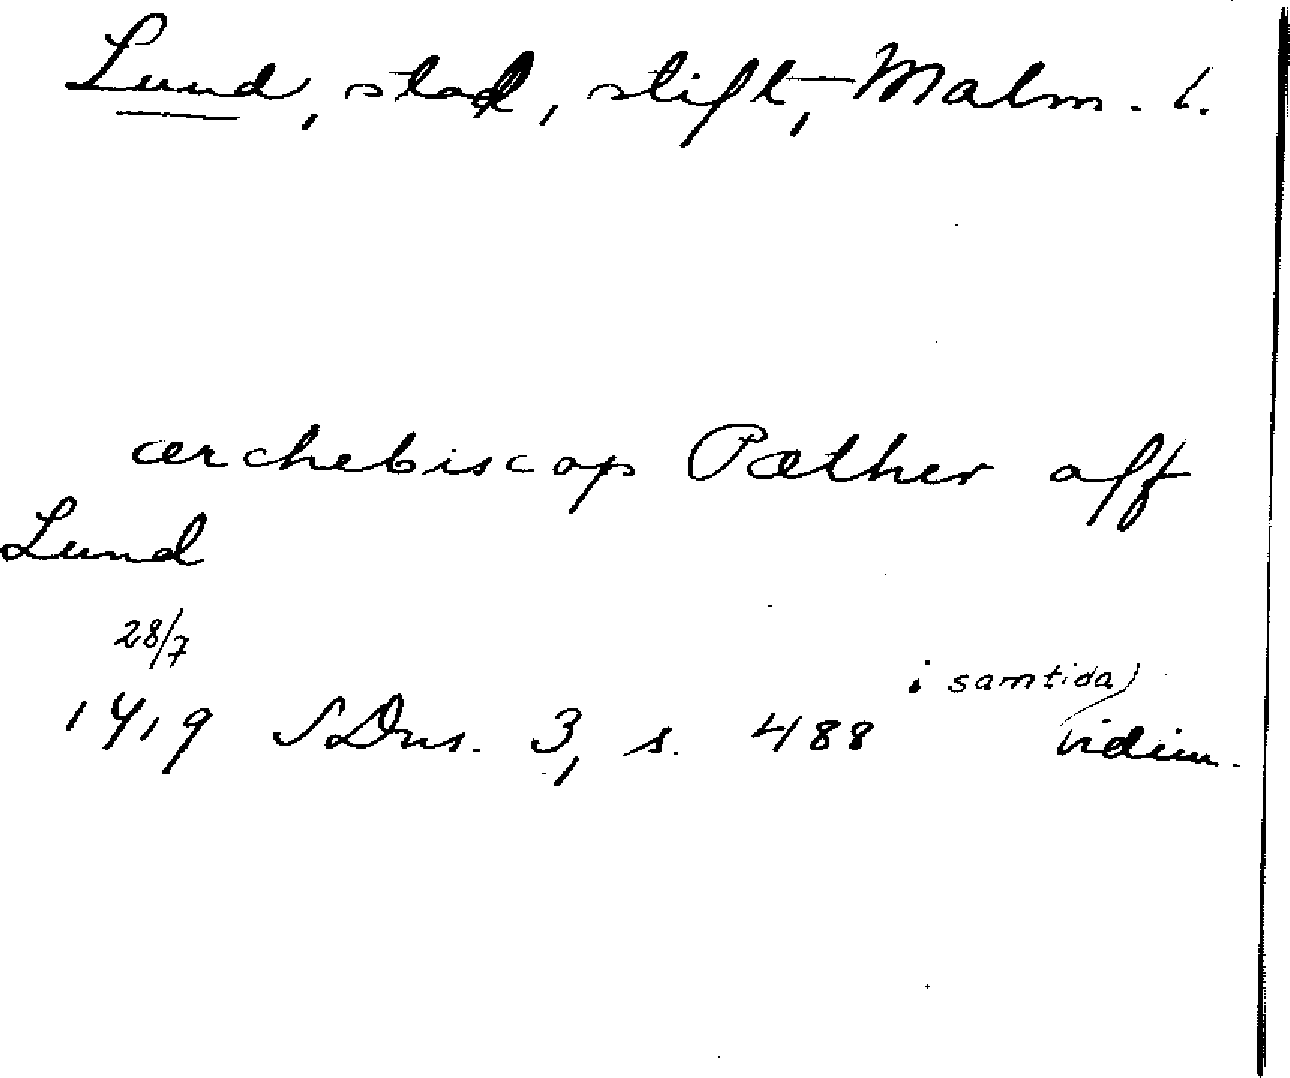 Lund, stad, stift, Malm. l.
ærchebiscop Pæther aff
Lund
28/7
1419 SDns. 3, s. 488 i samtida)
vidim.